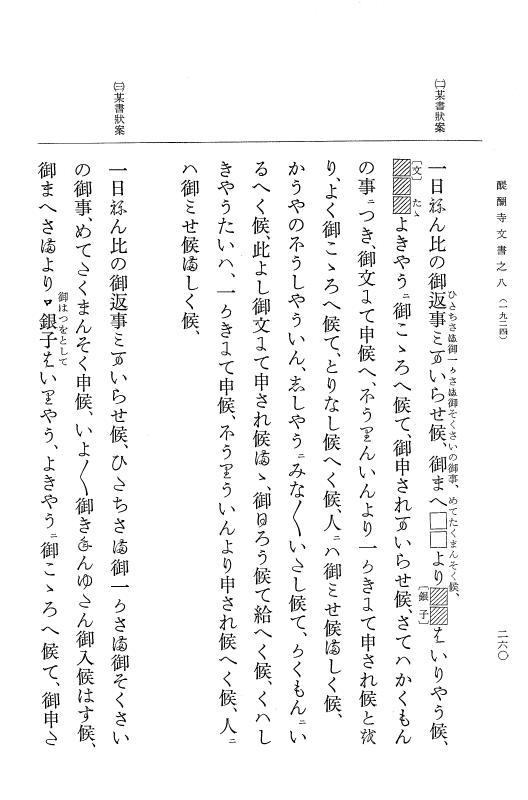 醍醐寺文書之八(一九二四)
二六〇
㈡某書狀案
ひたちさま御一かさま御そくさいの御事、めてたくまんそく候、
一日ねん比の御返事ミまいらせ候、御まへ□□より▨▨はいりやう候、
〔銀子〕
〔文〕たゝ
▨▨▨よきやうニ御こゝろへ候て、御申されまいらせ候、さてハかくもん
の事ニつき、御文にて申候へ、不うりんいんより一かきにて申され候と
り、よく御こゝろへ候て、とりなし候へく候、人ニハ御ミせ候ましく候、
かうやの不うしやういん、志しやうニみな〳〵いたし候て、かくもんニい
るへく候、此よし御文にて申され候まゝ、御日ろう候て給へく候、くハし
きやうたいハ、一かきにて申候、不うりういんより申され候へく候、人ニ
ハ御ミせ候ましく候、
㈢某書狀案
一日ねん比の御返事ミまいらせ候、ひたちさま御一かさま御そくさい
の御事、めてたくまんそく申候、いよ〳〵御きけんゆたん御入候はす候、
御はつをとして
御まへさまより ロ銀子はいりやう、よきやうニ御こゝろへ候て、御申さ